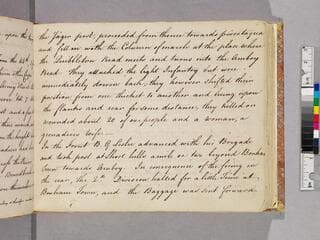 the Jäger post, proceeded from thence towards piscataqua
and fell in with the Column of march at the place where
the Quibbleton Road meets and turns into the Amboy
Road. They attacked the Light Infantry but were
immediately driven back, they however shifted their
position from one thicket to another and hung upon
the flanks and rear for some distance, they killed or
wounded about 20 of our people and a woman, a
grenadiers wife.
In the front B. G. Leslie advanced with his Brigade
and took post at Short hills a mile or two beyond Bonham
Town towards Amboy. In consequence of the firing in
the rear, the 2d Division halted for a little time at
Bonham Town, and the Baggage was sent forward